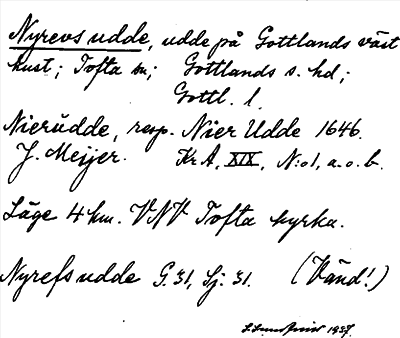 Nyrevs udde, udde på Gottlands väst
kust; Tofta sn; Gottlands s. hd;
Gottl. l.
Nierudde, resp. Nier Udde 1646.
J. Meijer. Kr A, XIX, N:o 1, a.o.b.
Läge 4 km. VNV Tofta kyrka.
Nyrefs udde G. 31, Sj: 31. (Vänd!)
1937.